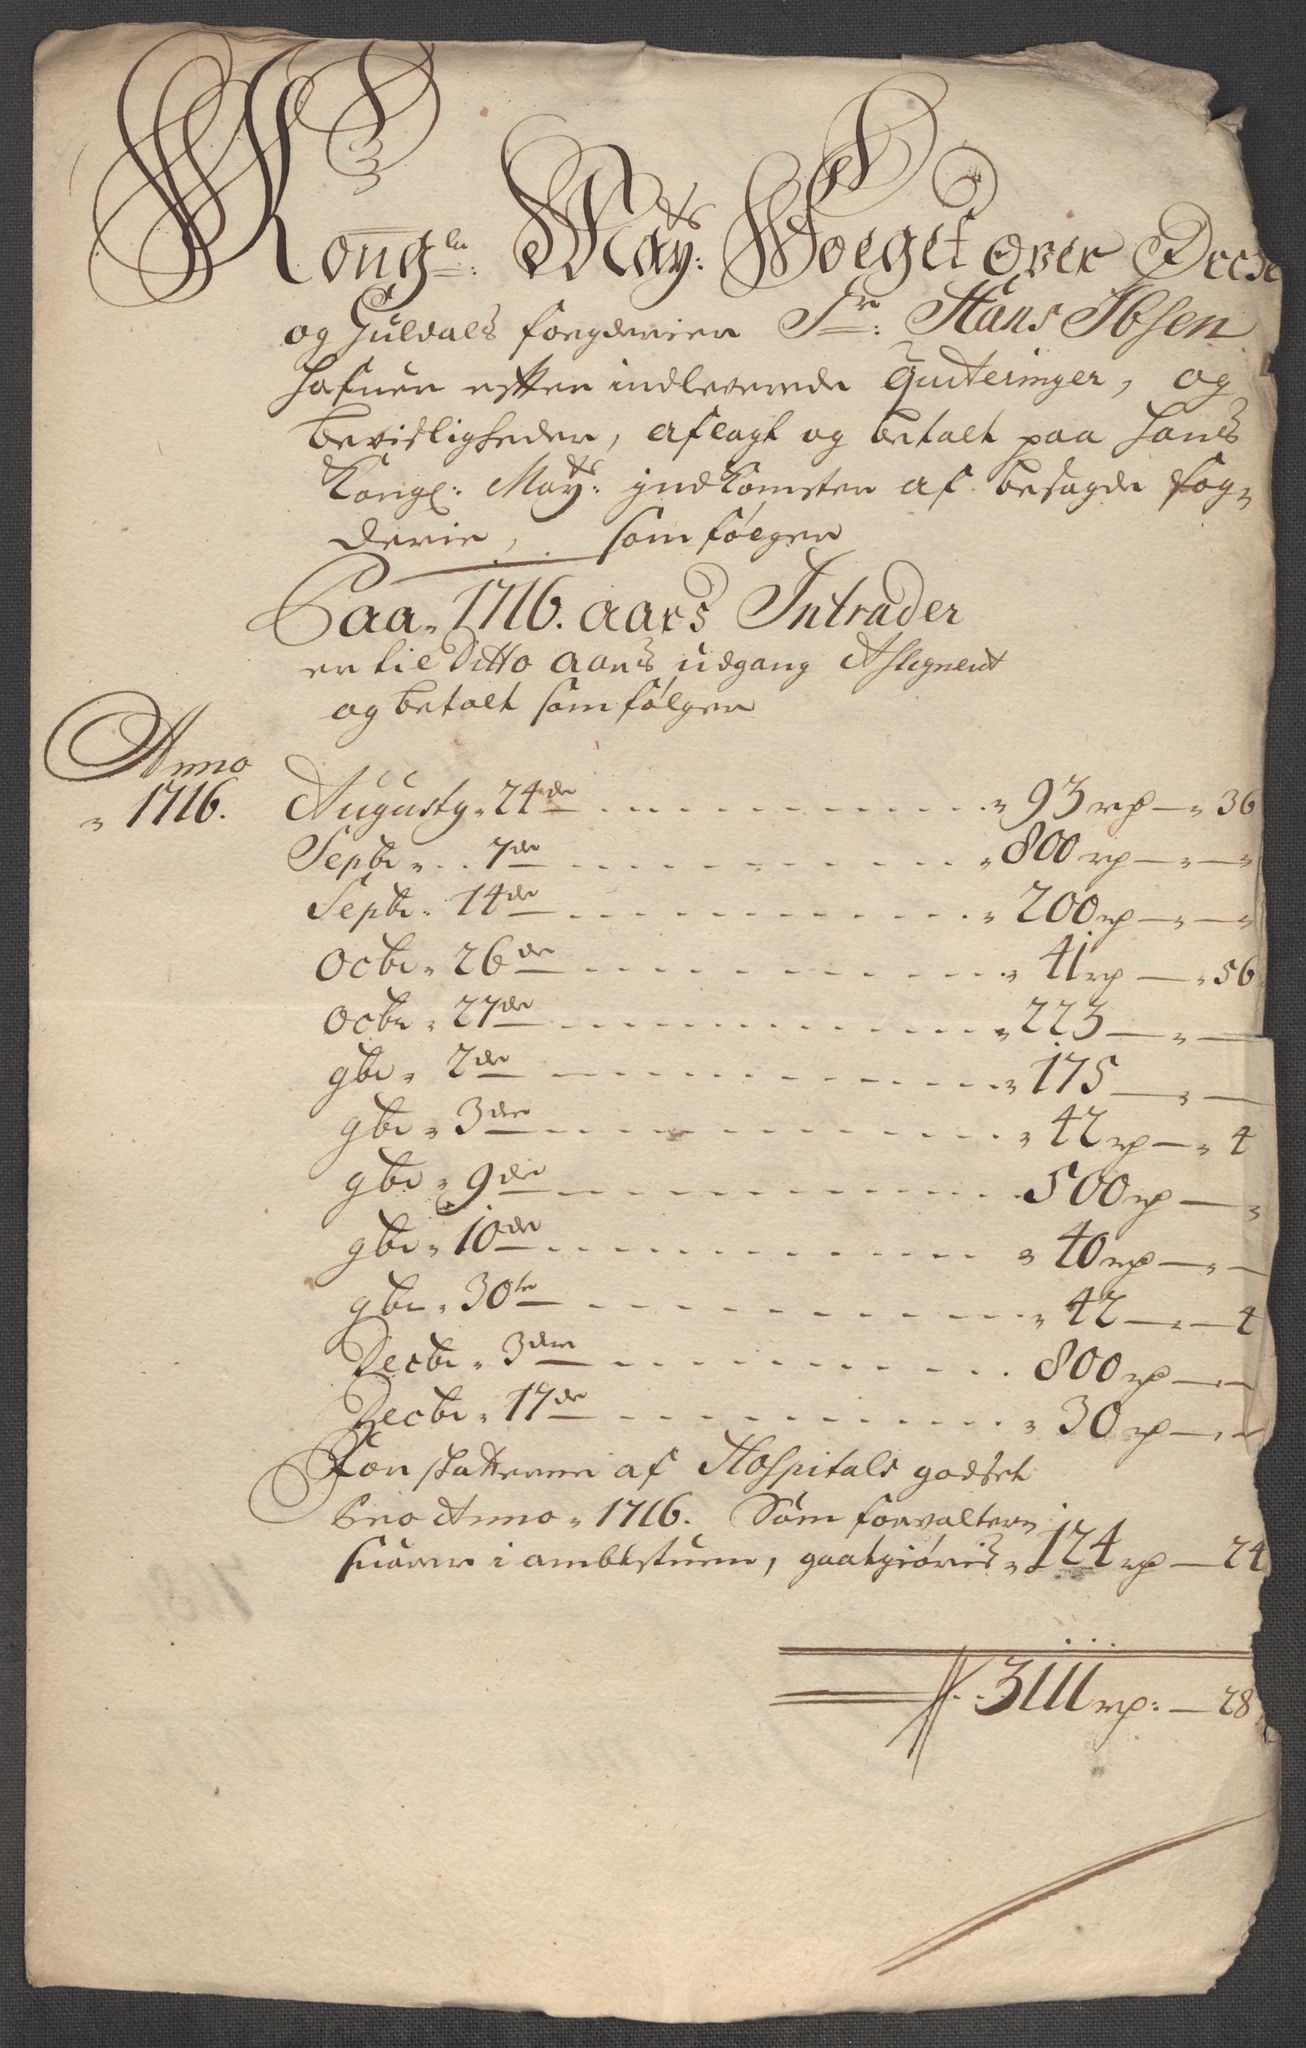 Kongl: Mayts: Foeget over Orche
og Guldals foegderier Sr: Hans Ibsen
hafuer efter indleverede Qviteringer, og
bevisligheder, aflagt og betalt paa hans
Kongl: Mayts: indkomster af besagde fog-
derie, som følger
Paa 1716. aars Intrader
er til Ditto aars udgang Assignert
og betalt som følger
Anno
1716. Augusty 24de - 93 rp - 36
Septbr 7de - 800 rp
Septbr 14de - 200 rp
Octbr 26de - 41 rp - 56
Octbr 27de - 223
9br 2de - 175
9br 3die - 42 rp - 4
9br 9de - 500 rp
9br 10de - 40 rp
9br 30te - 42 - 4
Decbr 3die - 800 rp
Decbr 17de - 30 rp
For skatterne af Hospitals godset
pro Anno 1716. Som forvalteren
suarer i ambtstuen, godtgiøris 124 rp - 24
3111 rp: - 28